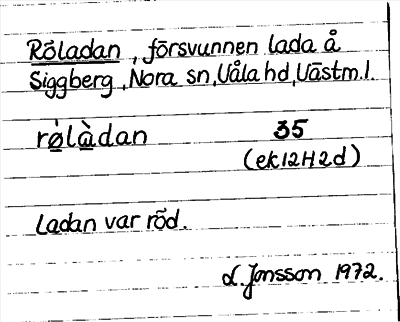 Röladan, försvunnen lada å
Siggberg, Nora sn, Våla hd, Västm.l.
røládan 35
(ek 12H2d)
Ladan var röd.
L. Jonsson 1972.